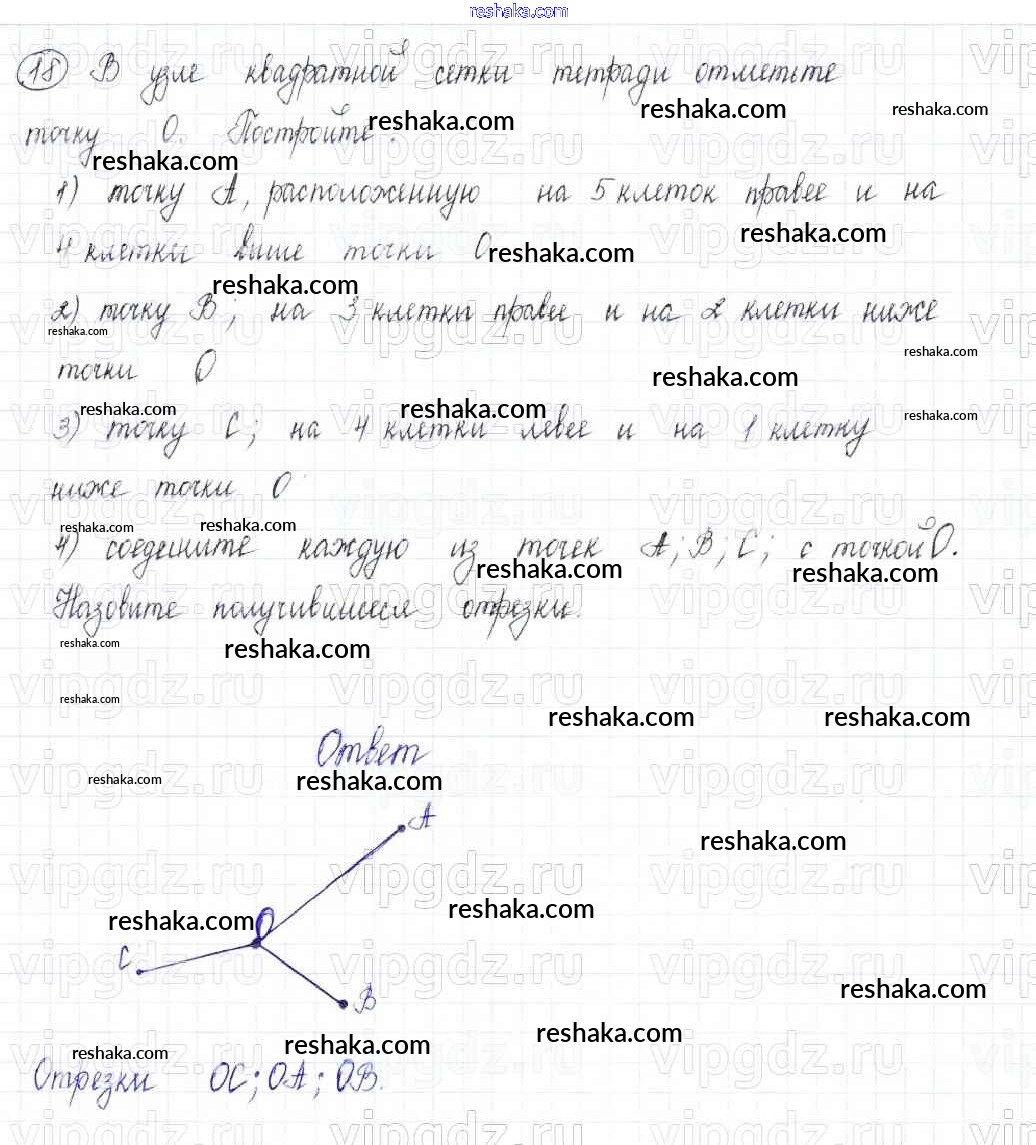 reshaka.com
18 В узле квадратной сетки тетради отметьте
точку О. Постройте:
1) точку А, расположенную на 5 клеток правее и на
4 клетки выше точки О
2) точку В; на 3 клетки правее и на 2 клетки ниже
точки О
3) точку С; на 4 клетки левее и на 1 клетку
ниже точки О
4) соедените каждую из точек А; В; С; с точкой О.
Назовите получившиеся отрезки.
Ответ
А
О
С
В
Отрезки ОС; ОА; ОВ.